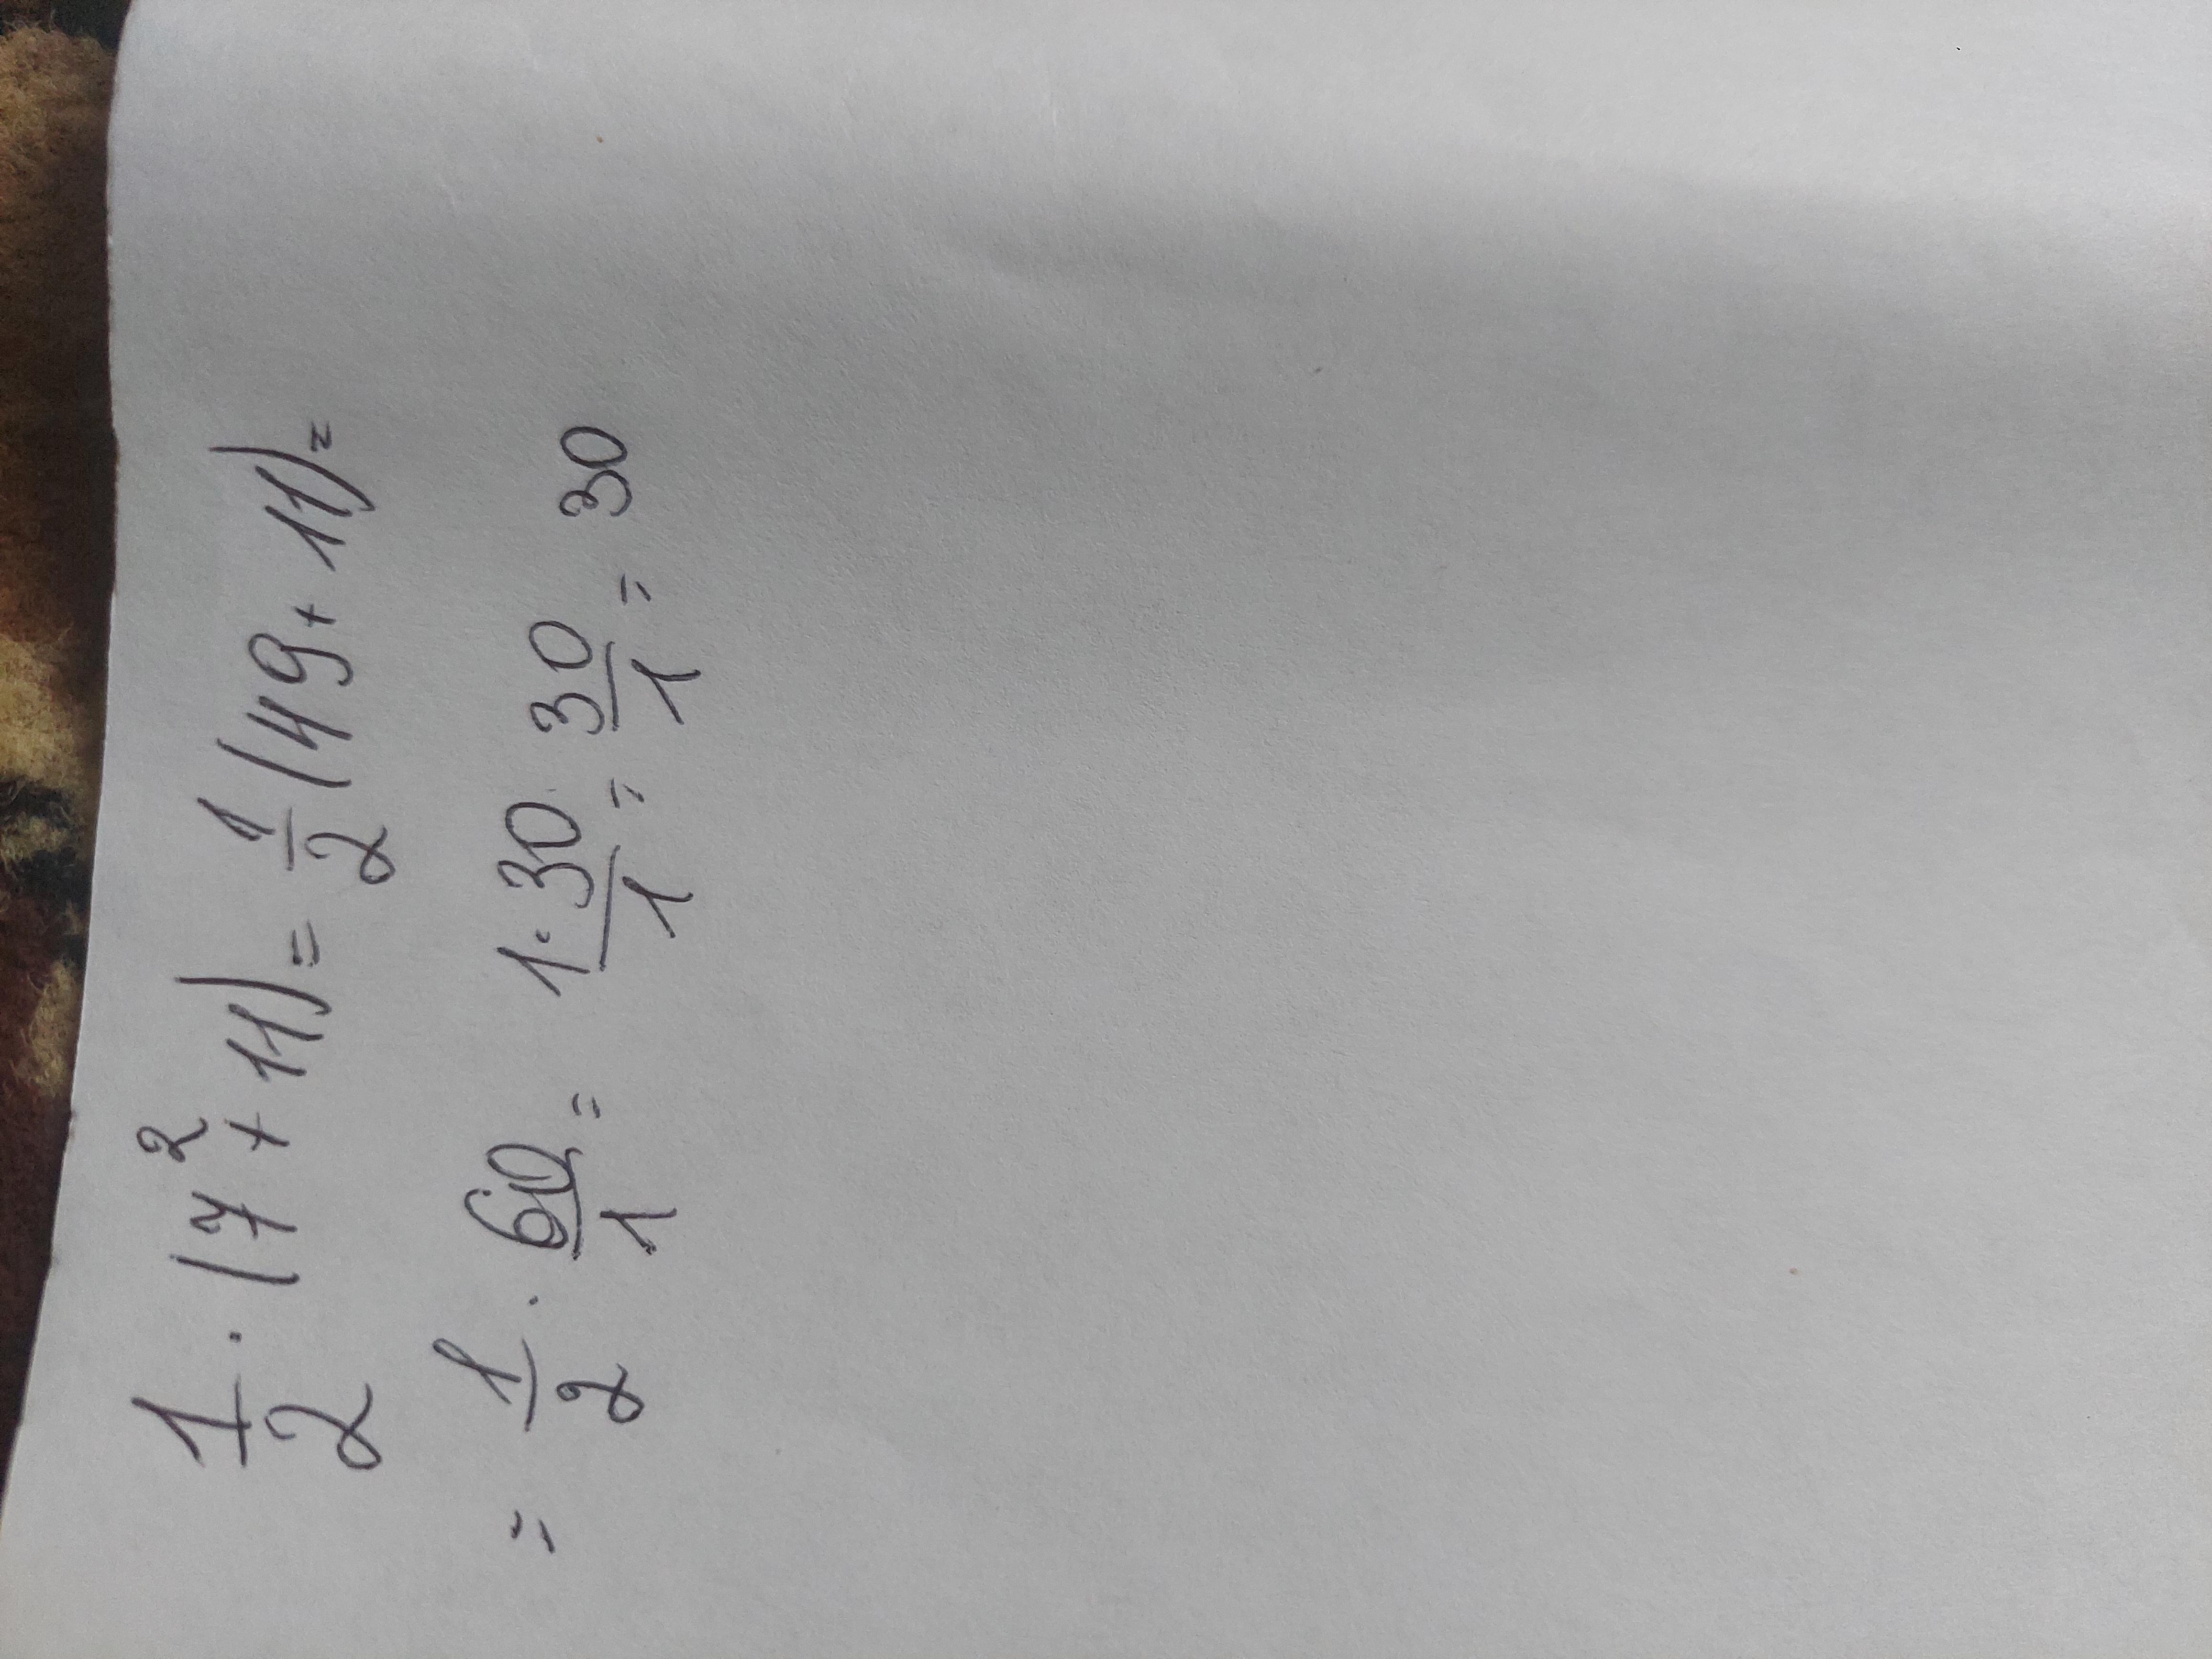 1/2 · (7² + 11) = 1/2 (49 + 11) =
= 1/2 · 60/1 = 1·30/1 = 30/1 = 30